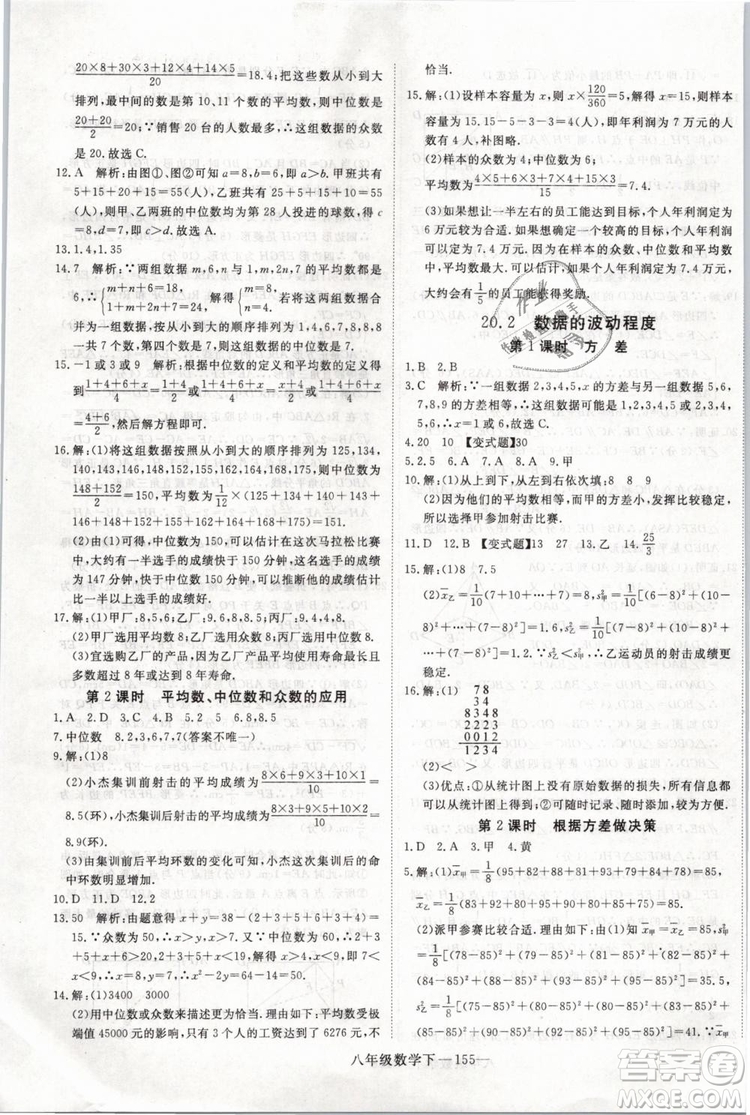 20×8+30×3+12×4+14×5/20=18.4;把这些数从小到大
排列,最中间的数是第10、11个数的平均数,则中位数是
20+20/2=20;∵销售20台的人数最多,∴这组数据的众数
是20.故选C.
12.A 解析:由图①、图②可知a=8,b=6,即a>b.甲班共有
5+15+20+15=55(人),乙班共有11+13+16+15=
55(人),则甲、乙两班的中位数为第28人投进的球数,则c
=8,d=7,即c>d.故选A.
13.1.4,1.35
14.7 解析:∵两组数据m,6,n与1,m,2n,7的平均数都是
6,∴{m+n+6=18, 1+m+2n+7=24,解得{m=8, n=4.若将这两组数据合并为一
组数据,按从小到大的顺序排列为1,4,6,7,8,8,8,一共7
个数,第四个数是7,则这组数据的中位数是7.
15.-1或3或9 解析:根据平均数和中位数的定义可得
1+4+6+x/4=1+4/2或1+4+6+x/4=4+x/2或1+4+6+x/4=
4+6/2,然后解方程即可.
16.解:(1)将这组数据按照从小到大的顺序排列为125,134,
140,143,146,148,152,155,162,168,则中位数为
148+152/2=150,平均数为1/10×(125+134+140+143+
146+148+152+155+162+168)=147.3.
(2)由(1)可得中位数为150,可以估计在这次马拉松比赛
中,大约有一半选手的成绩快于150分钟,有一半选手的
成绩慢于150分钟,这名选手的成绩为147分钟,快于中
位数150分钟,因此可以推断他的成绩估计比一半以上
选手的成绩好.
17.解:(1)甲厂:8,5,6;乙厂:9.6,8.5,8;丙厂:9.4,4,8.
(2)甲厂选用平均数;乙厂选用众数;丙厂选用中位数.
(3)宜选购乙厂的产品,因为乙厂产品平均使用寿命
超过8年或达到或超过8年寿命.
第2课时 平均数、中位数和众数的应用
1.A 2.D 3.C 4.B 5.2.5 6.8,8.5
7.中位数 8.2,3,6,7(答案不唯一)
9.解:(1)8
(2)小杰集训前射击的平均成绩为8×6+9×3+10×1/10=
8.5(环),小杰集训后射击的平均成绩为8×3+9×5+10×2/10=
8.9(环).
(3)由集训前后平均环数的变化可知,小杰这次集训后的
成绩提高了.
10.D 11.D 12.2
13.50 解析:由题意得x+y=58-20×2-30×3-50×6=
15.∵众数为50分,∴x>y.又∵中位数为60分,∴2+3
+5+x<6+y+3+4,∴x<y+3.∴y<x<y+3.∴x=8,
y=7.∴x²-2y=64-14=50.
14.解:(1)3400 3000
(2)用中位数或众数来描述更为恰当.理由:平均数受极
端值45000元的影响,只有3个人的工资达到了6276元,不
恰当.
15.解:(1)设样本容量为x,则x×120/360=5,解得x=
15.15-5-3-2-1=4,即年利润为7万元的人数
为4.补图略.
(2)样本的众数为4;中位数为6;
平均数为4×5+6×3+7×4+15×2+10×1/15=7.4.
(3)如果想让一半左右的员工能达标,个人年利润定为
6万元较为合适;如果想确定一个较高的目标,个人年
利润可定为7.4万元,因为样本平均数是7.4万元,
大约会有1/5的员工能获得奖励.
20.2 数据的波动程度
第1课时 方差
1.B 2.B
3.C 解析:∵一组数据2,3,4,5,x与另一组数据5,6,
7,8,9的方差相等,∴这组数据可能是2,3,4,5,6或
1,2,3,4,5,∴x=1或6.故选C.
4.20 10 【变式题】30
5.2.5 6.A 7.A 8.A 9.甲
10.解:(1)表格中从左到右依次填:6,6.
(2)因为他们的平均数相等,而甲的方差小,发挥比较稳定,
所以选择甲参加射击比赛.
11.D 12.B 【变式题】13 27 13.乙 14.25/3
15.解:(1)8 7.5
(2)x̄乙=1/10(7+10+…+7)=8;s²甲=1/10[(6-8)²
+(10-8)²+…+(7-8)²]=1.6;s²乙=1/10[(7-8)²+
(10-8)²+…+(7-8)²]=1.2.∵s²乙<s²甲,∴乙运动员的射击成绩更
稳定.
16.解:(1) 78
8 34
8348
0000
1234
(2)< <
(3)优点:①从统计图上没有原始数据的损失,所有信息都
可以从统计图上得到;②可随时记录与添加,方便记录与表示.
第2课时 根据方差做决策
1.B 2.A 3.甲 4.黄
5.解:(1)x̄甲=1/8(82+81+79+78+95+88+93+84)=85,
x̄乙=1/8(83+92+80+95+90+80+85+75)=85.
(2)派甲参赛比较合适.理由如下:由(1)知x̄甲=x̄乙,
s²甲=1/8[(82-85)²+(81-85)²+(79-85)²+(78-
85)²+(95-85)²+(88-85)²+(93-85)²+(84-
85)²]=35.5;s²乙=1/8[(83-85)²+(92-85)²+(80-
85)²+(95-85)²+(90-85)²+(80-85)²+(85-
85)²+(75-85)²]=41.∵x̄甲=x̄乙,s²甲<s²乙,∴甲的
八年级数学下—155—